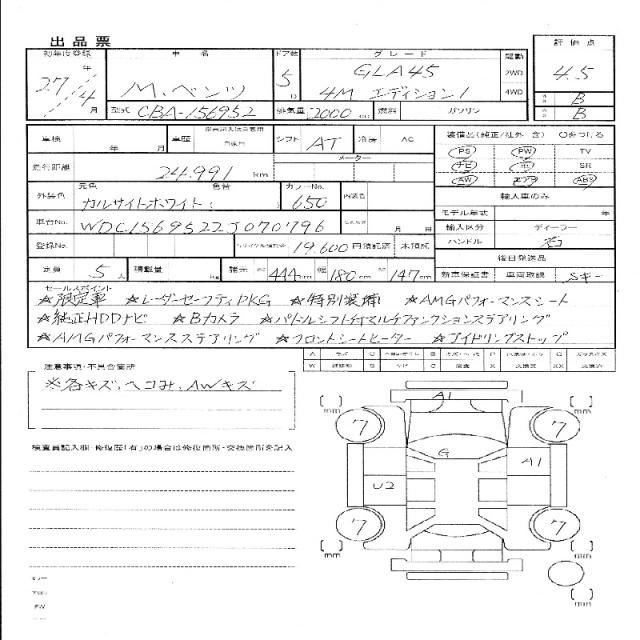 出品票
初年度登録 車名 ドア数 グレード 駆動 評価点
27年 4月 M.ベンツ 5D GLA45 2WD 4.5
4M エディション1 4WD B
型式 CBA-156952 排気量 2000cc 燃料 ガソリン B
車検 年 月 車歴 シフト AT 冷房 AC 装備品(純正/社外 含) ○をつける
メーター PS PW TV
走行距離 24.991km SR
AW ABS
外装色 元色 カルサイトホワイト 色替 カラーNo. 650 内装色 輸入車のみ
モデル年式 年
車台No. WDC1569522J070796 月 日 輸入区分 ディーラー
登録No. リサイクル預託金 19,600円預託済 未預託 ハンドル 右
後日発送品
定員 5人 積載量 kg 諸元 長 444cm 幅 180cm 高 147cm 新車保証書 車両取説 Sキー
セールスポイント
☆限定車 ☆レーダーセーフティPKG ☆特別装備 ☆AMGパフォーマンスシート
☆純正HDDナビ ☆Bカメラ ☆パドルシフト付マルチファンクションステアリング
☆AMGパフォーマンスステアリング ☆フロントシートヒーター ☆アイドリングストップ
注意事項・不具合箇所
※各キズ、ヘコみ、AWキズ
検査員記入欄・修復歴「有」の場合は修復箇所・交換箇所を記入
A1
[ ]mm 7 7 [ ]mm
G
U2 A1
7 7
[ ]mm [ ]mm
[ ]mm